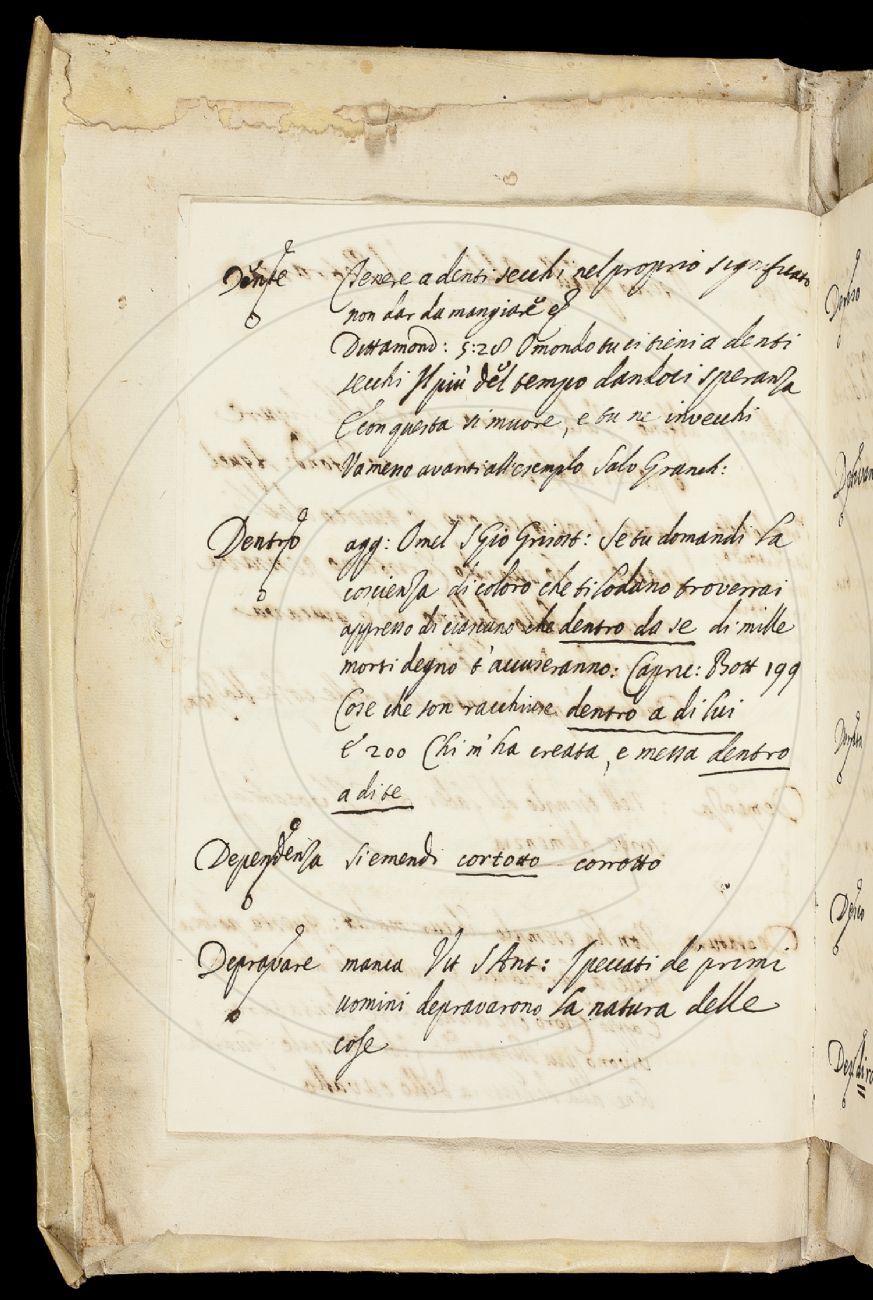 Dente Tenere a denti secchi nel proprio significato
non dar da mangiare es
Dittamond: 5:28 O mondo tu ci tieni a denti
secchi Il più del tempo dandoci speranza
E con questa si muore, e tu ne invecchi
Va messo avanti all'esemplo Salv Granch:
Dentro agg: Omel S Gio Grisost: Se tu domandi la
coscienza di coloro che ti lodano troverrai
appresso di ciascuno che dentro da se di mille
morti degno t'accuseranno: Capric: Bott 199
Cose che son racchiuse dentro a di lui
E 200 Chi m'ha creata, e messa dentro
a di te
Dependenza Si emendi cortotto corrotto
Depravare manca Vit S Ant: I peccati de primi
uomini depravarono la natura delle
cose
Depravan
Desco